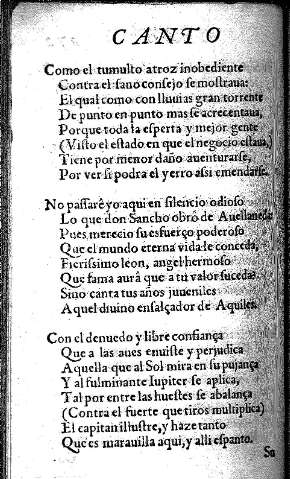 CANTO
Como el tumulto atroz inobediente
Contra el sano consejo se mostraua:
El qual como con lluuias gran torrente
De punto en punto mas se acrecentaua,
Porque toda la esperta y mejor gente
(Visto el estado en que el negocio estaua,)
Tiene por menor daño auenturarse,
Por ver si podra el yerro assi emendarse.
No passarè yo aqui en silencio odioso
Lo que don Sancho obrò de Auellaneda
Pues merecio su esfuerço poderoso
Que el mundo eterna vida le conceda,
Fierissimo leon, angel hermoso
Que fama aurà que a tu valor suceda?
Sino canta tus años juueniles
Aquel diuino ensalçador de Aquiles.
Con el denuedo y libre confiança
Que a las aues enuiste y perjudica
Aquella que al Sol mira en su pujança
Y al fulminante Iupiter se aplica,
Tal por entre las huestes se abalança
(Contra el fuerte que tiros multiplica)
El capitan illustre, y haze tanto
Que es marauilla aqui, y alli espanto.
Su